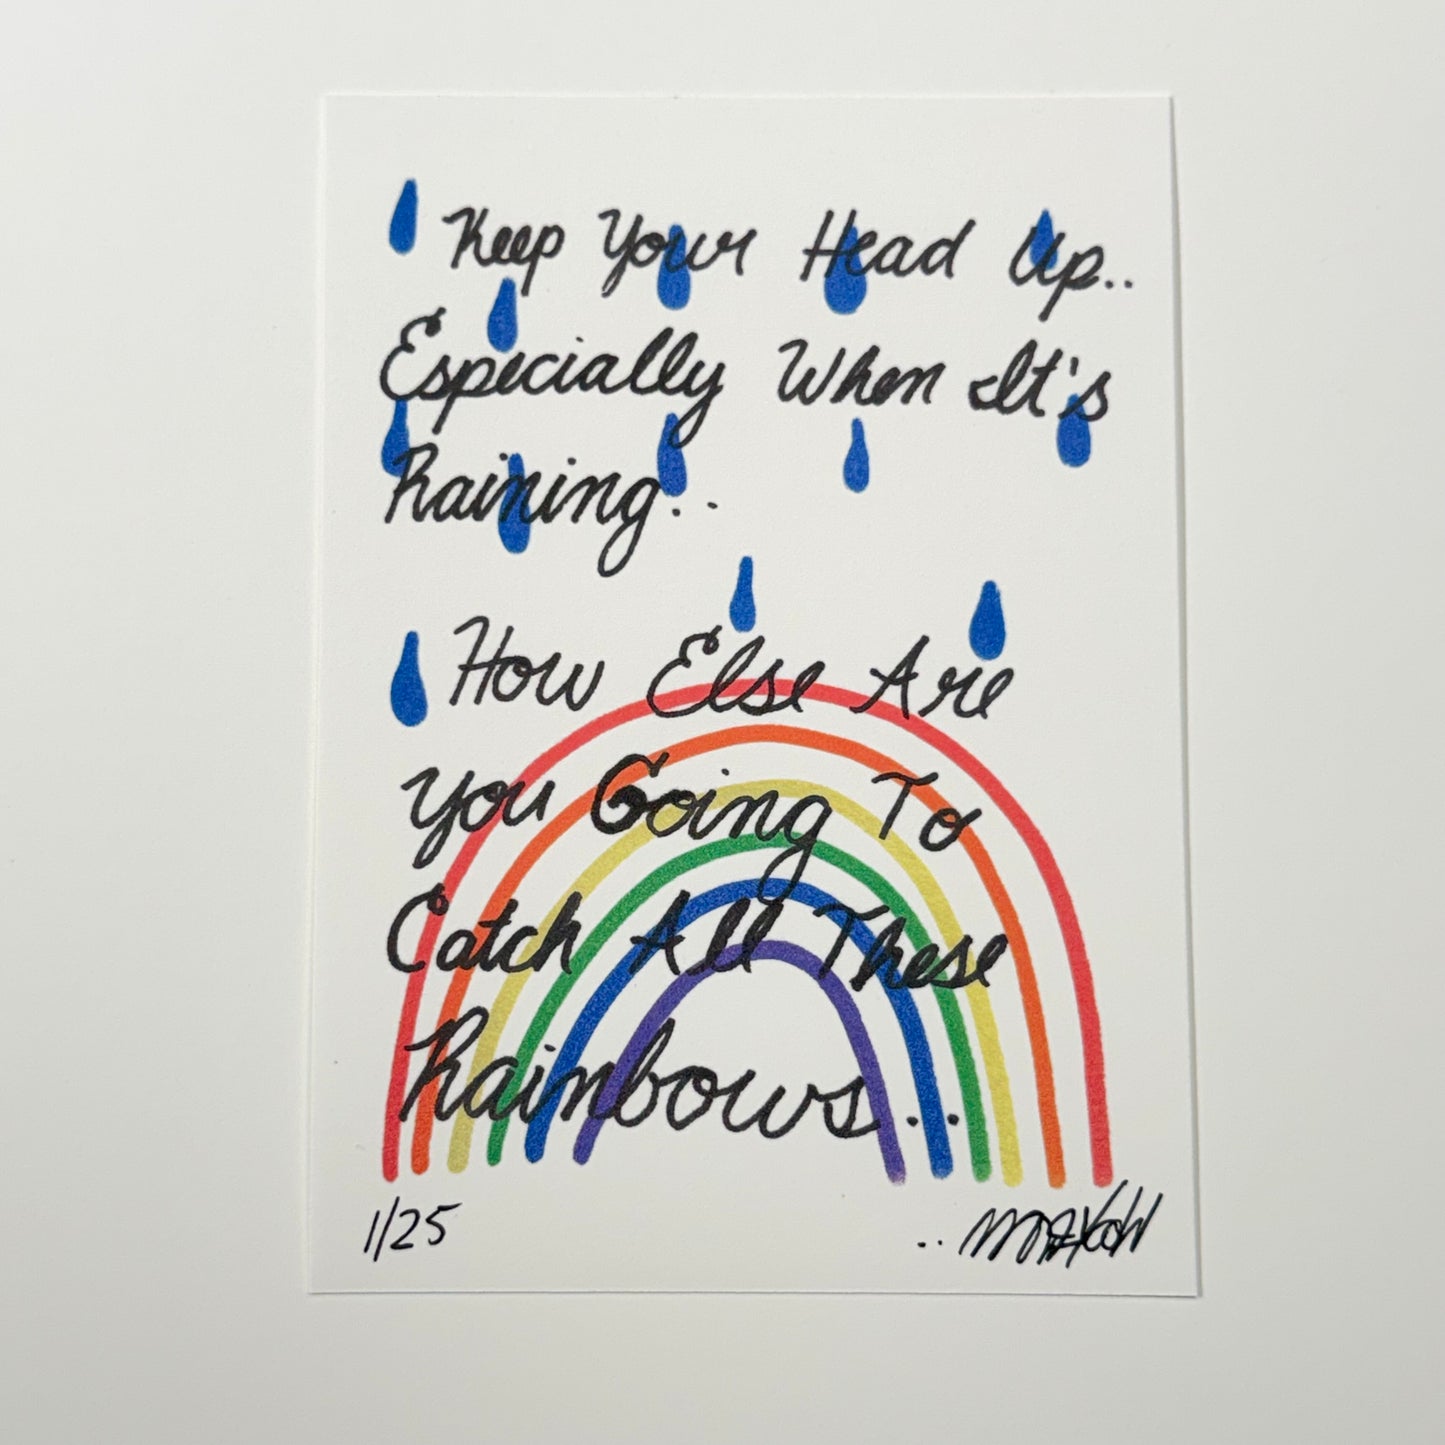 Keep Your Head Up..
Especially When It's
Raining..
How Else Are
You Going To
Catch All These
Rainbows...
1/25